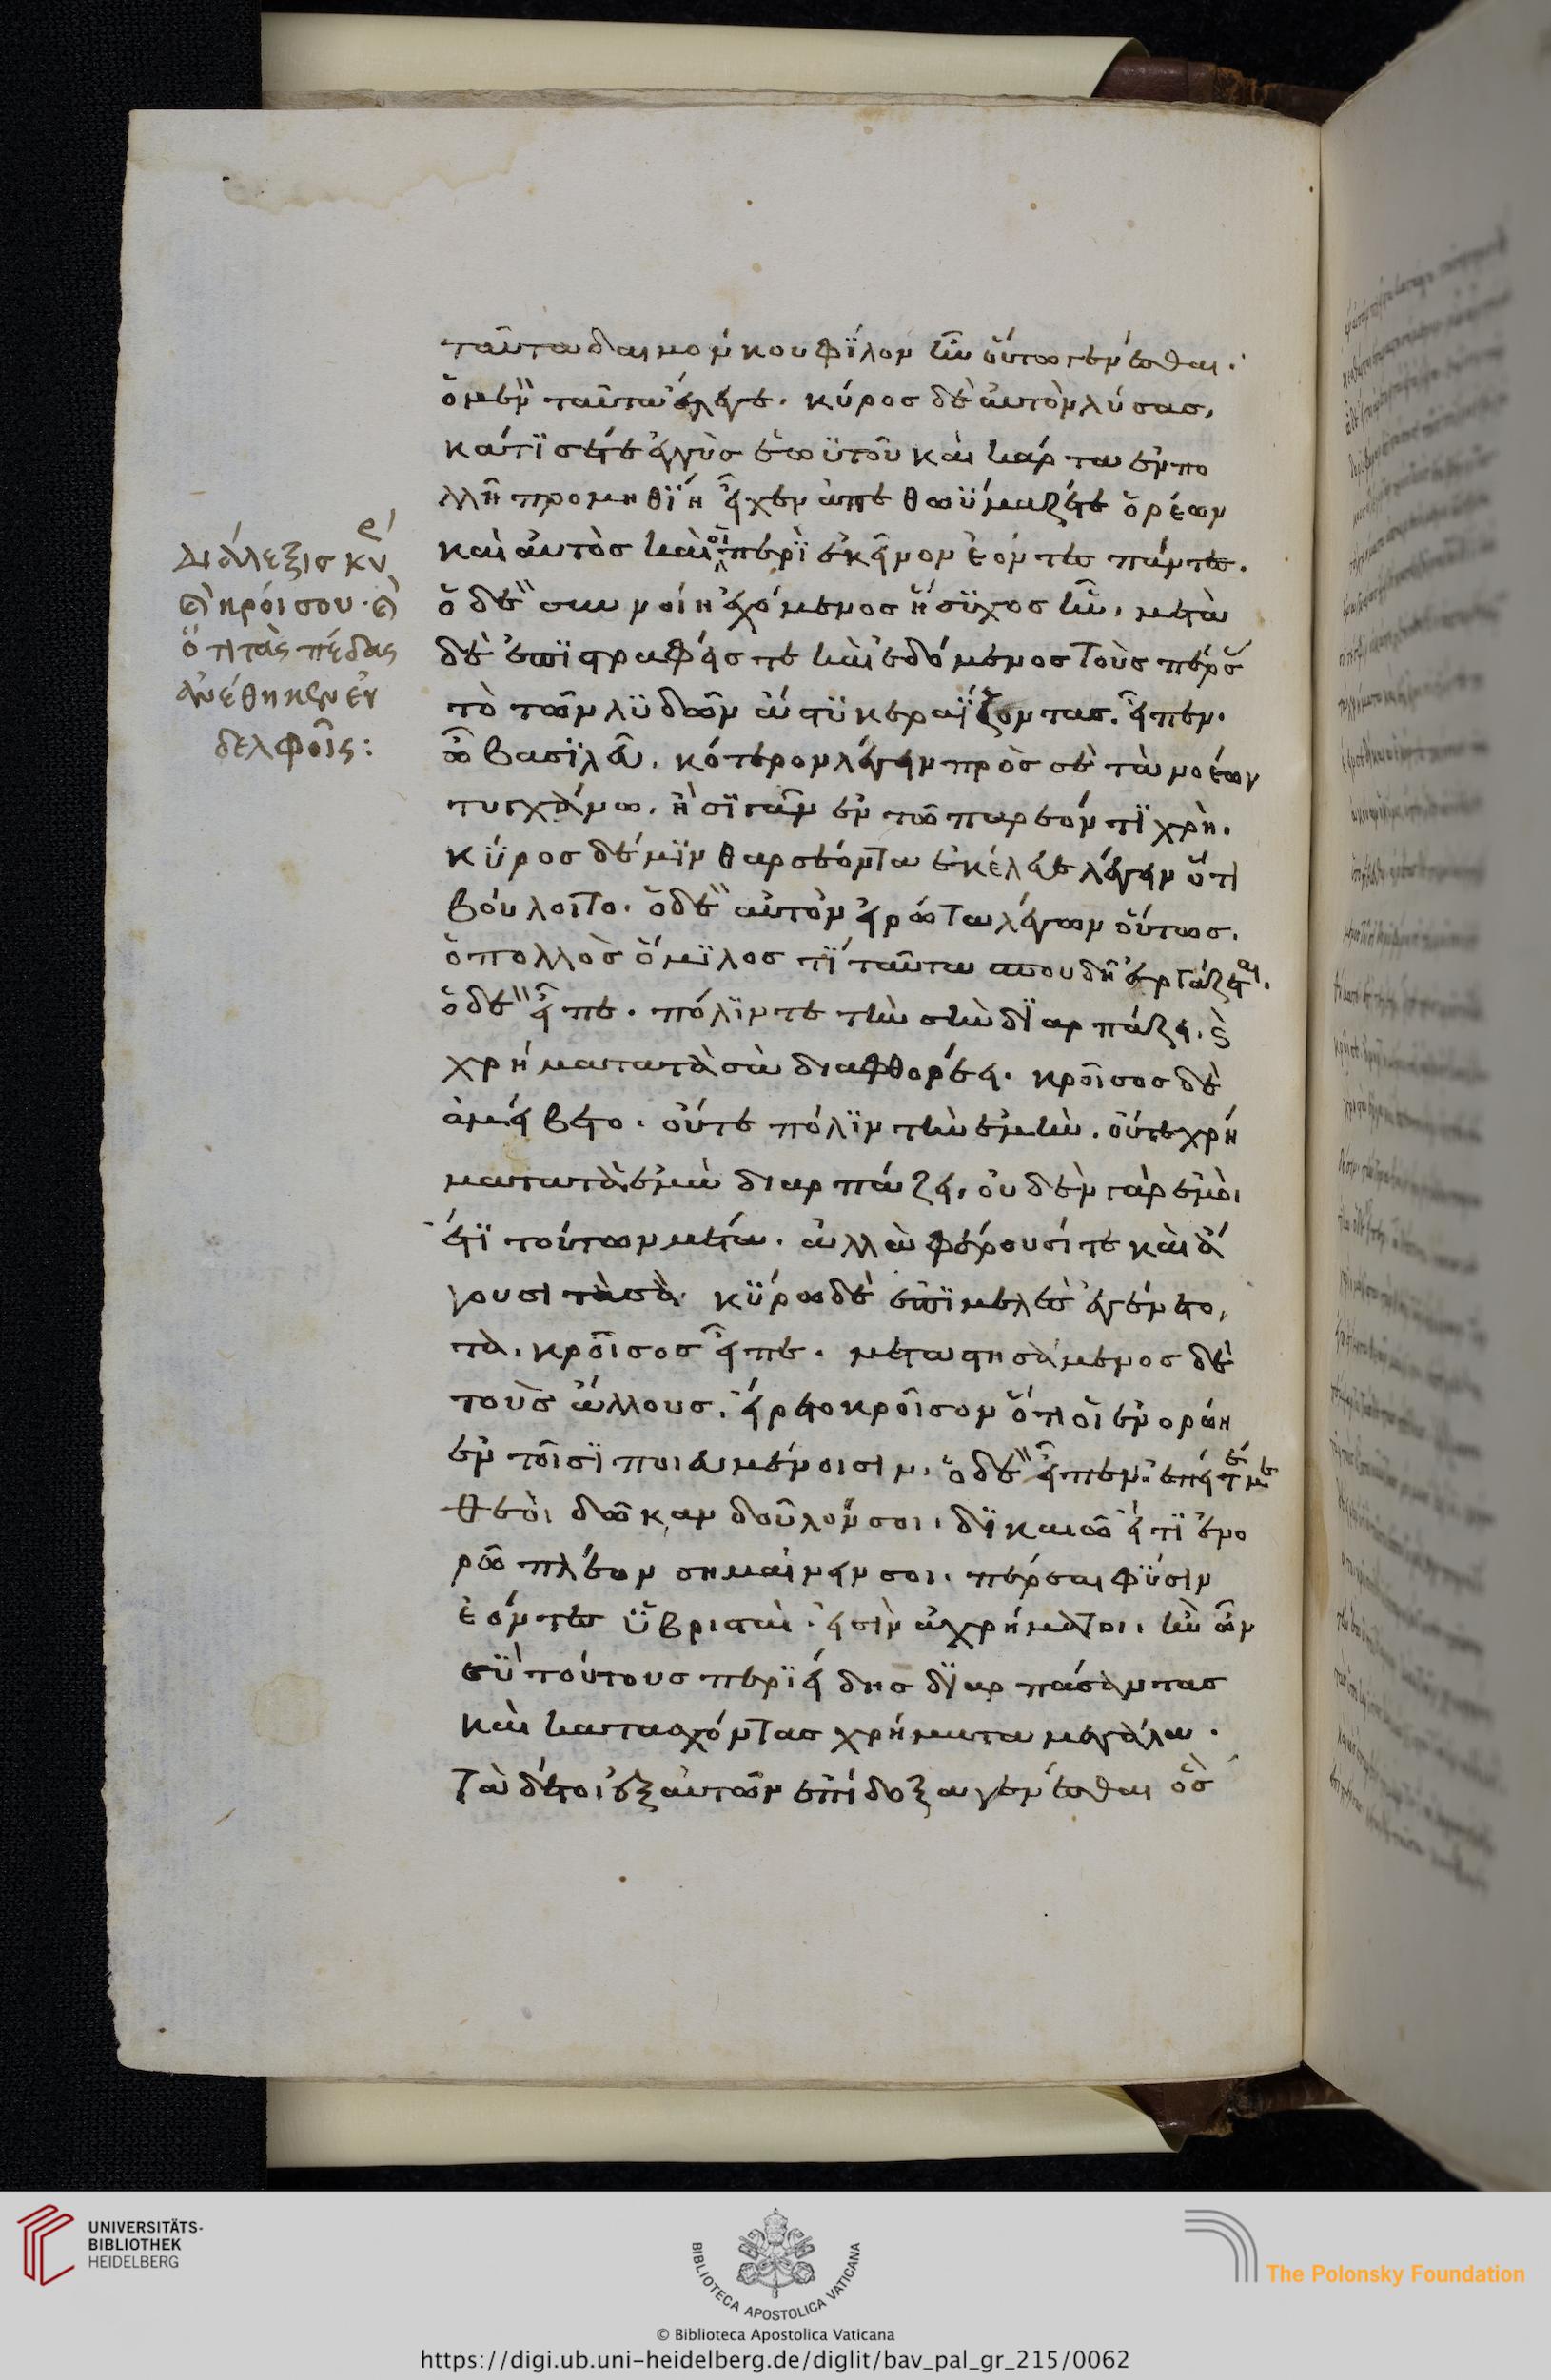 Διάλεξις κύρ
(καὶ) κροίσου· (καὶ)
ὅτι τὰς πέδας
ἀνέθηκεν ἐν
δελφοῖς:
ταῦτα δαίμοσί κου φίλον ἦν οὕτω γενέσθαι·
ὁ μὲν ταῦτα ἔλεγε. κύρος δὲ ἀυτὸν λύσας,
κάτισέ τε ἐγγὺς ἑωυτοῦ καὶ κάρτα ἐν πο
λλῆ προμηθίη εἶχεν ἀπεθωύμαζέ τε ὁρέων
καὶ ἀυτὸς καὶ οἱ περὶ ἐκεῖνον ἐόντες πάντες.
ὁ δὲ συννοίη ἐχόμενος ἥσυχος ἦν, μετὰ
δὲ ἐπιστραφείς τε καὶ ἰδόμενος τοὺς πέρσ
τὸ τῶν λυδῶν ἄστυ κεραΐζοντας. εἶπεν.
ὦ βασιλεῦ, κότερον λέγειν πρὸς σὲ τὰ νοέων
τυγχάνω, ἢ σιγᾶν ἐν τῶ παρεόντι χρή.
κῦρος δέ μιν θαρσέοντα ἐκέλευε λέγειν ὅτι
βούλοιτο. ὁ δὲ αὐτὸν εἰρώτα λέγων οὕτως.
ὁ πολλὸς ὅμιλος τί ταῦτα σπουδῆ ἐργάζεται.
ὁ δὲ εἶπε. πόλιν τε τὴν σὴν διαρπάζει, (καὶ)
χρήματα τὰ σὰ διαφθορέει. κροῖσος δὲ
ἀμείβετο. οὔτε πόλιν τὴν ἐμὴν, οὔτε χρή
ματα τὰ ἐμὰ διαρπάζει, οὐδὲν γὰρ ἐμοὶ
ἔτι τούτων μέτα. ἀλλὰ φέρουσί τε καὶ ἄ
γουσι τὰ σά. κύρω δὲ ἐπιμελὲς ἐγένετο,
τὰ κροῖσος εἶπε. μεταστησάμενος δὲ
τοὺς ἄλλους, εἴρετο κροῖσον ὅτι οἱ ἐνορώη
ἐν τοῖσι ποιευμένοισιν. ὁ δὲ εἶπεν. ἐπείτέ με
θεοὶ δῶκαν δοῦλόν σοι, δικαιῶ εἴ τι ἐνο
ρῶ πλέον σημαίνειν σοι. πέρσαι φύσιν
ἐόντες ὑβρισταὶ. εἰσὶν ἀχρήματοι. ἢν ὦν
σὺ τούτους περιείδης διαρπάσαντας
καὶ κατασχόντας χρήματα μεγάλα.
τὰ δέ τοι ἐξ αὐτῶν ἐπίδοξα γενέσθαι ὃς
UNIVERSITÄTS-
BIBLIOTHEK
HEIDELBERG
BIBLIOTECA APOSTOLICA VATICANA
The Polonsky Foundation
© Biblioteca Apostolica Vaticana
https://digi.ub.uni-heidelberg.de/diglit/bav_pal_gr_215/0062